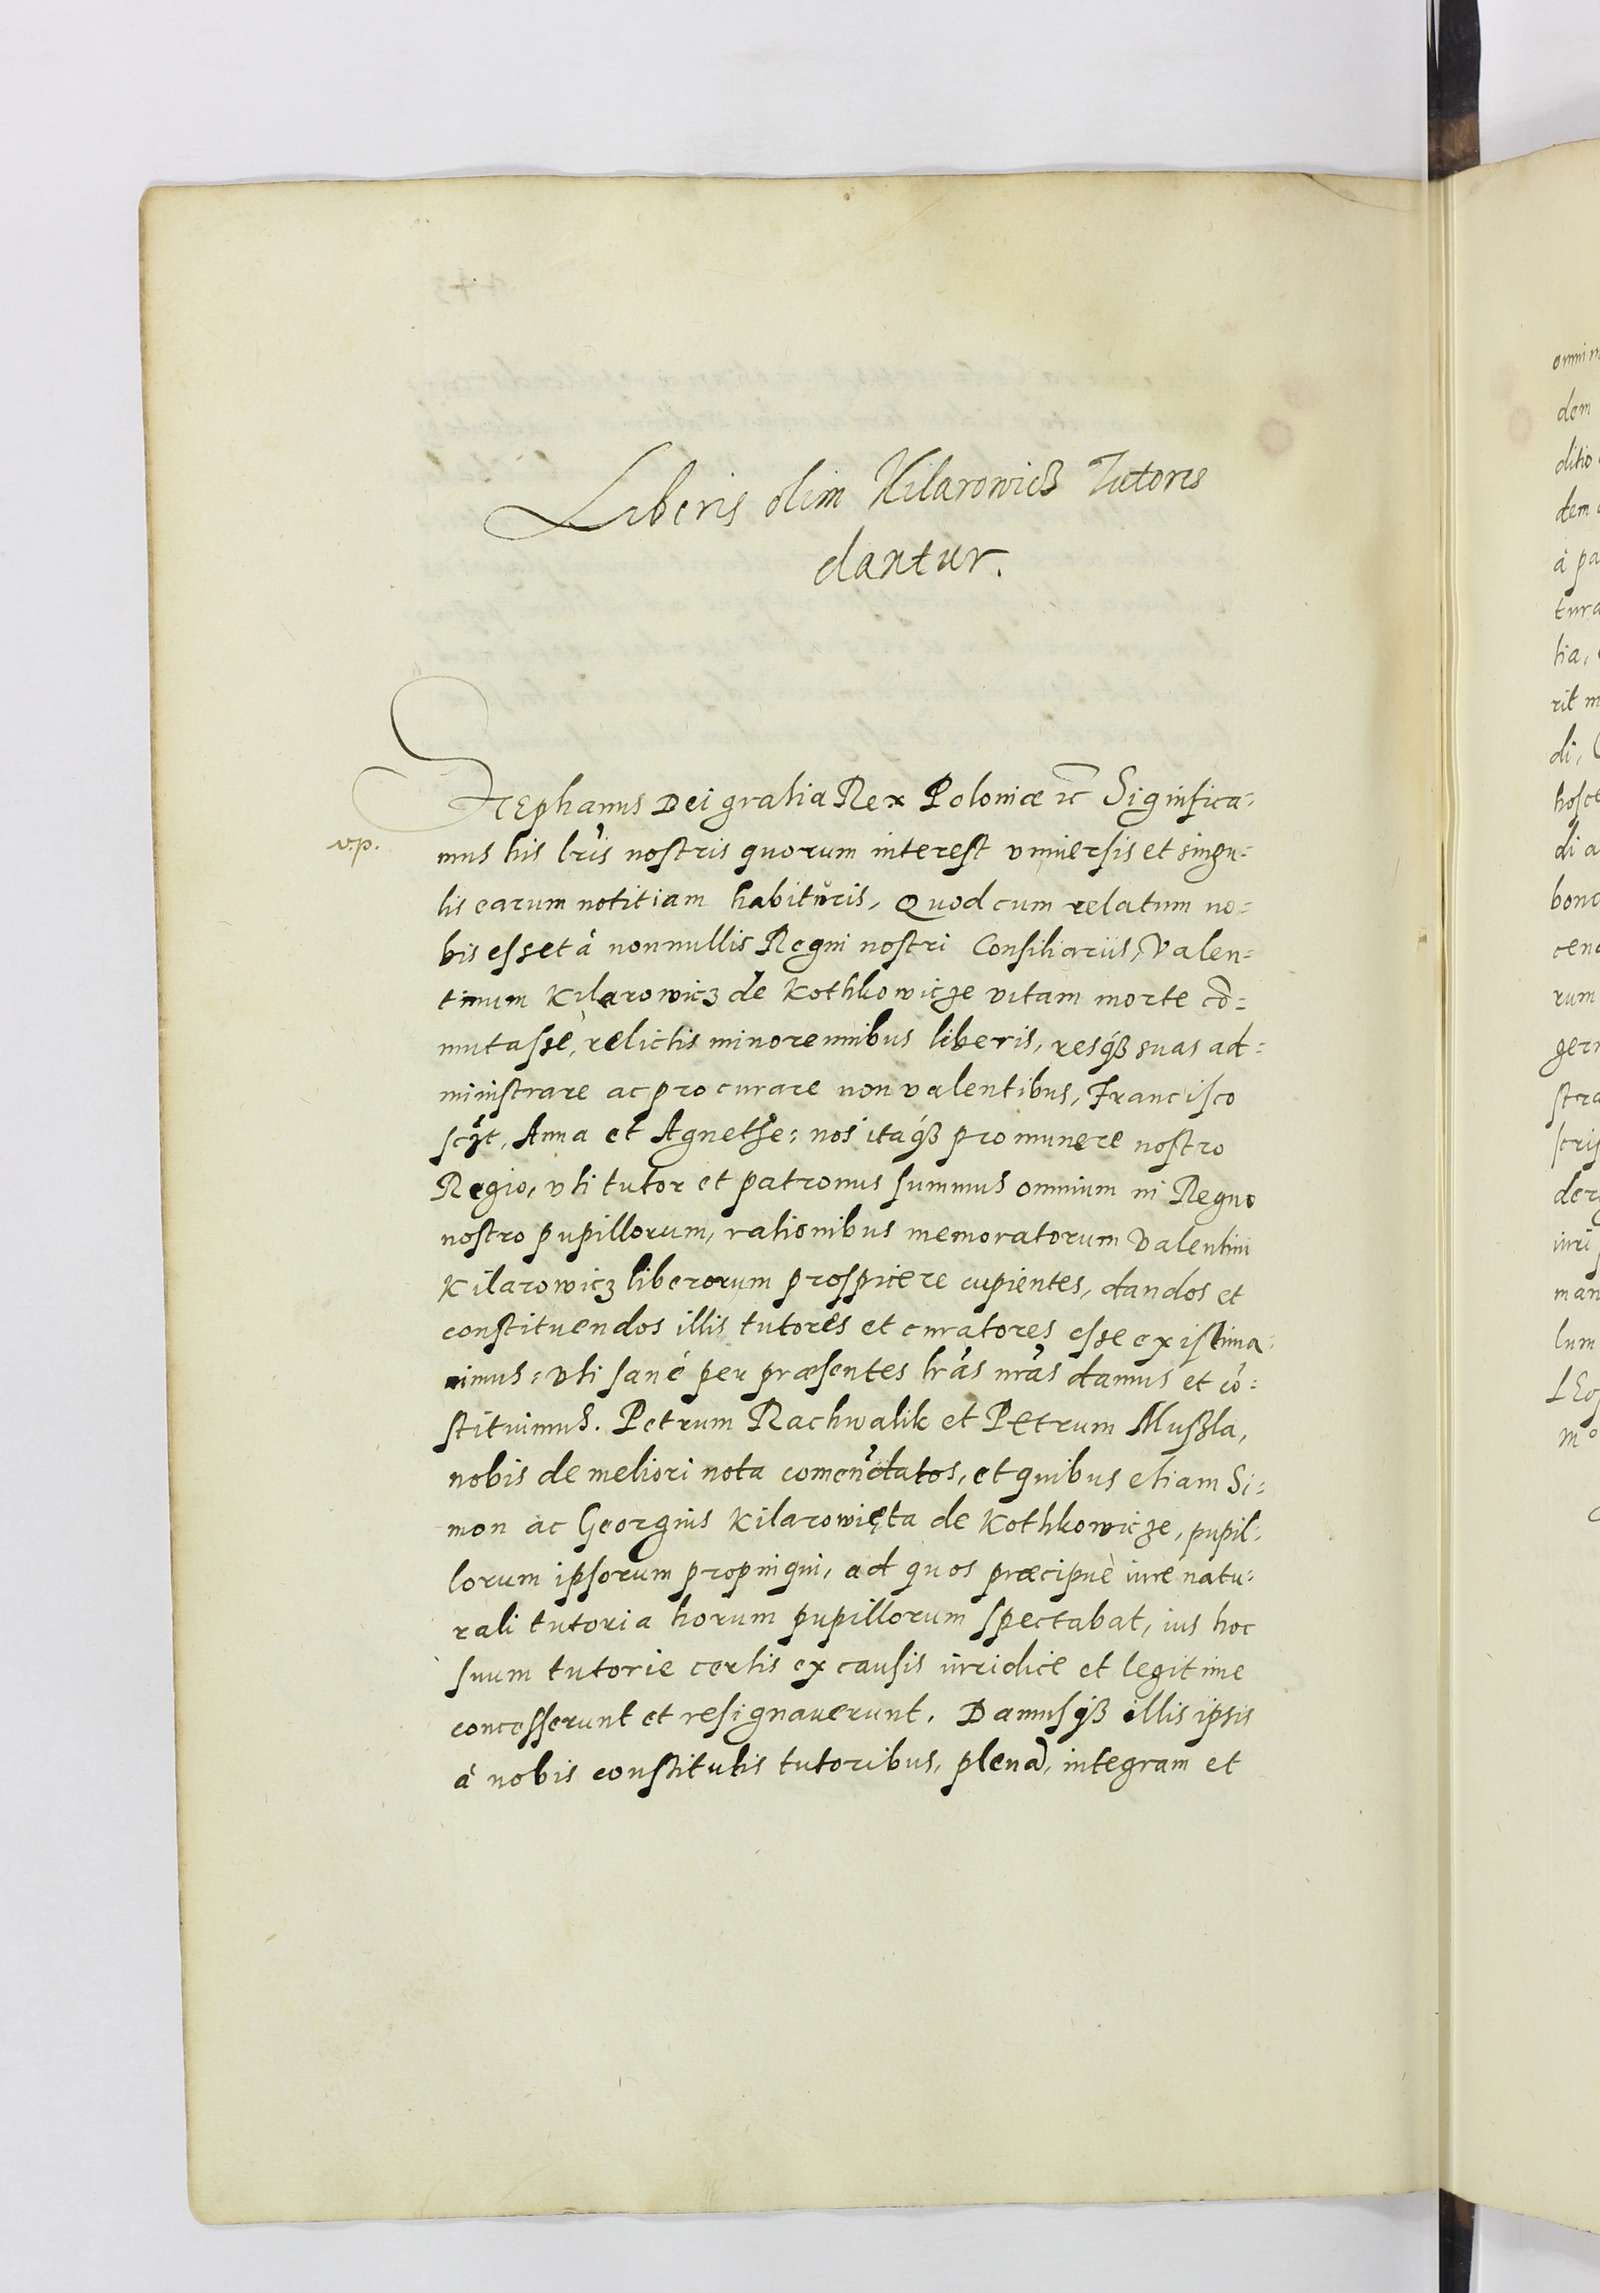 Liberis olim Kilarowicz Tutores
dantur.
Stephanus Dei gratia Rex Poloniæ etc Significa-
v.p.
mus his lr̃is nostris quorum interest vniuersis et singu-
lis earum notitiam habituris, Quod cum relatum no-
bis esset à nonnullis Regni nostri Consiliariis, Valen-
tinum Kilarowicz de Kothkowicze vitam morte cõ-
mutasse, relictis minorennibus liberis, resq́ȝ suas ad-
ministrare ac procurare non valentibus, Francisco
sczt, Anna et Agnethe: nos itaq́ȝ pro munere nostro
Regio, vti tutor et patronus summus omnium in Regno
nostro pupillorum, rationibus memoratorum Valentini
Kilarowicz liberorum prospicere cupientes, dandos et
constituendos illis tutores et curatores esse existima-
uimus: Vti sané per præsentes lr̃as nr̃as damus et cõ-
stituimus. Petrum Rachwalik et Petrum Muszla,
nobis de meliori nota comen̄datos, et quibus etiam Si-
mon ac Georgius Kilarowięta de Kothkowicze, pupil-
lorum ipsorum propinqui, ad quos præcipuè iure natu-
rali tutoria horum pupillorum spectabat, ius hoc
suum tutorie certis ex causis iuridice et legitime
concesserunt et resignauerunt. Damusq́ȝ illis ipsis
à nobis constitutis tutoribus, plenã, integram et
omnim
dem
ditio
dem
à pa
tura
tia,
rit m
di,
hosce
di a
bono
cena
rum
gern
stra
scrip
der
iuri
man
lum